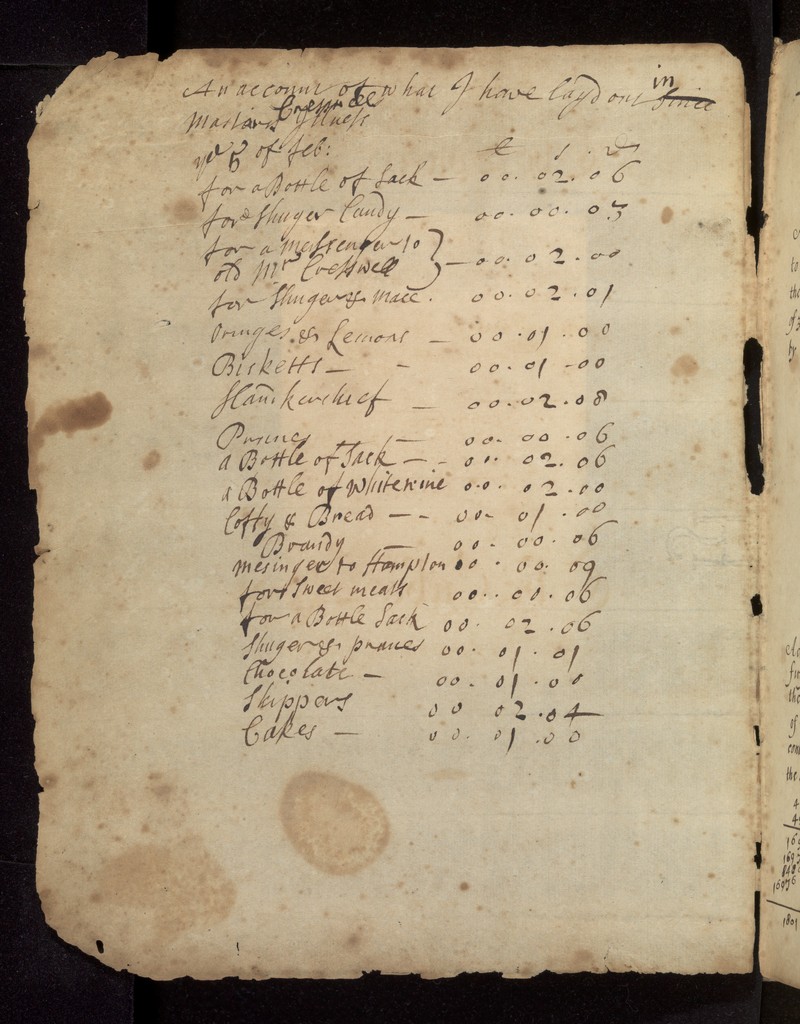 An account of what I have layd out in Since
Mastar Creswell Illness
ye 8 of feb:
£ s. D
for a Bottle of Sack — 00. 02. 06
for Shuger Candy — 00. 00. 03
for a messenger to
old Mr Creswell } — 00. 02. 00
for Shuger & mace. 00. 02. 01
Oringes & Lemons — 00. 01. 00
Bisketts — - 00. 01 - 00
Hankerchief — 00. 02. 08
Prunes — 00. 00. 06
a Bottle of Sack — - 00. 02. 06
a Bottle of Whitewine 00. 02. 00
Coffy & Bread — - 00- 01. 00
Brandy — 00. 00. 06
mesinger to Hampton 00. 00. 09
for Sweet meats 00. 00. 06
for a Bottle Sack 00. 02. 06
Shuger & prunes 00. 01. 01
Chocolate — 00. 01. 00
Skippers 00 02. 04
Cakes — 00. 01. 00